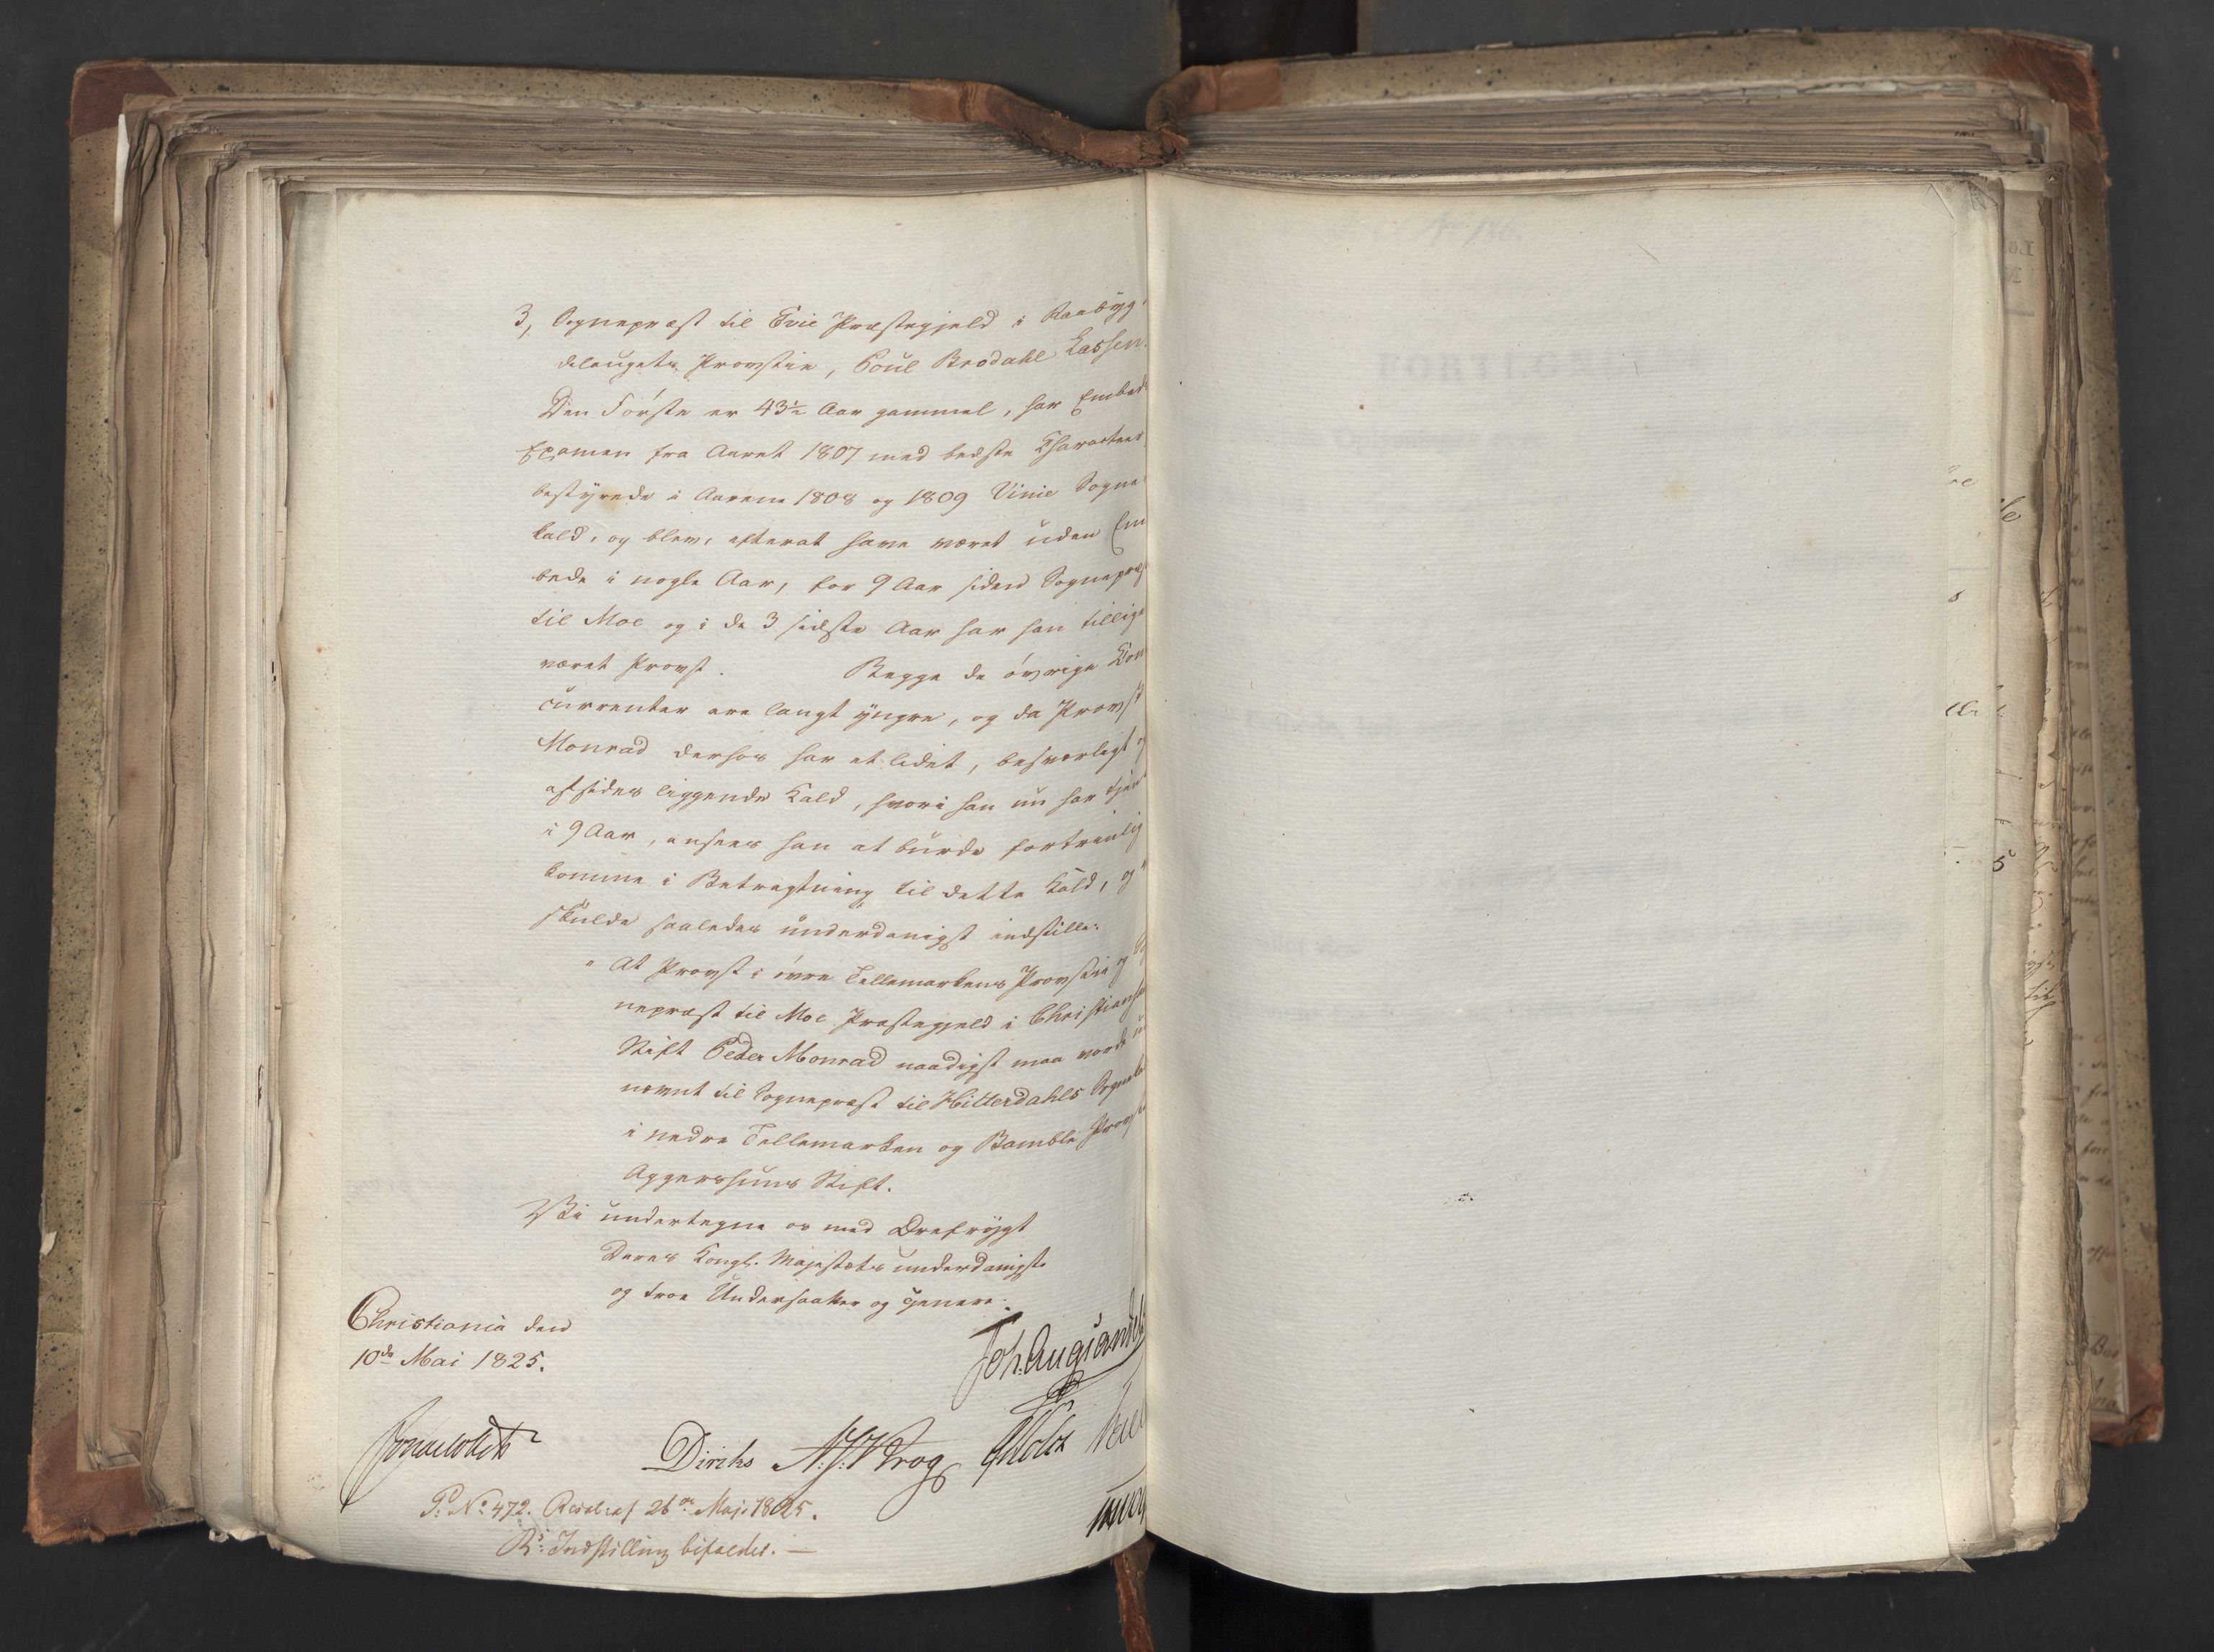 3, Sognepræst til Evie Præstegjeld i Raabyg-
delaugets Provstie, Poul Brodahl Lassen.
Den Første er 43½ Aar gammel, har Embeds
Examen fra Aaret 1807 med bedste Characteer,
bestyrede i Aarene 1808 og 1809 Vinie Sogne-
kald, og blev, efterat have været uden Em
bede i nogle Aar, for 9 Aar siden Sognepræst
til Moe og i de 3 sidste Aar har han tillige
været Provst. Begge de øvrige Con
currenter ere langt yngre, og da Provst
Monrad derhos har et lidet, besværligt og
afsides liggende Kald, hvori han nu har tjent
i 9 Aar, ansees han at burde fortrinlig
komme i Betragtning til dette Kald, og
skulde saaledes underdanigst indstille:
" At Provst i øvre Tellemarkens Provstie og Sog
nepræst til Moe Præstegjeld i Christiansa
Stift Peder Monrad naadigst maa vorde ud
nævnt til Sognepræst til Hitterdahls Sognekald
i nedre Tellemarken og Bamble Provstie
Aggershuus Stift.
Vi undertegne os med Ærefrygt
Deres Kongl. Majestæts underdanigste
og troe Undersaatter og Tjenere.
Christiania den
10de Mai 1825.
Joh. Aug. Sandels
Sommerfeldt Diriks N. J. Krog Holst
P. No 472. Resol: af 26de Maji 1825.
R: Indstilling bifaldes. —